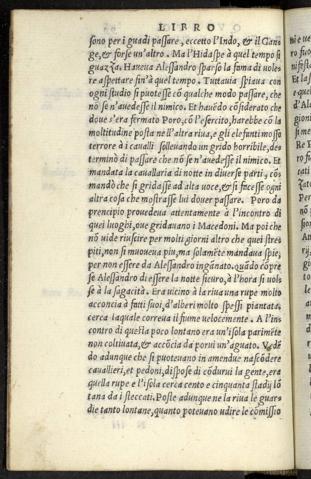 LIBRO
sono per i guadi passare, eccetto l'Indo, & il Gan‍
ge, & forse un'altro. Ma l'Hidaspe à quel tempo si
guazza. Haveua Alessandro sparso la fama di uole‍
re aspettare fin'à quel tempo. Tuttauia spiaua con
ogni studio si puotesse cō qualche modo passare, che
nō se n'auedesse il nimico. Et hauēdo cōsiderato che
doue s'era fermato Poro, cō l'esercito, harebbe cō la
moltitudine posta nell'altra riua, e gli elefanti mosso
terrore à i caualli solleuando un grido horribile, de‍
terminò di passare che nō se n'auedesse il nimico. Et
mandata la cauallaria di notte in diuerse parti, cō‍
mandò che si gridasse ad alta uoce, & si facesse ogni
altra cosa che mostrasse lui douer passare. Poro da
prencipio prouedeua attentamente à l'incontro di
quei luoghi, oue gridauano i Macedoni. Ma poi che
nō uide riuscire per molti giorni altro che quei stre‍
piti, non si muoueua piu, ma solamēte mandaua spie,
per non essere da Alessandro ingānato. quādo cōpre
se Alessandro di essere la notte sicuro, à l'hora si uol‍
se à la sagacità. Era uicino à la riua una rupe molto
acconcia à fatti suoi, d'alberi molto spessi piantata,
cerca la quale correua il fiume uelocemente. A l'in‍
contro di quella poco lontano era un'isola parimēte
non coltiuata, & accōcia da porui un'aguato. Vedē
do adunque che si puoteuano in amendue nascōdere
cauallieri, et pedoni, dispose di cōdurui la gente, era
quella rupe e l'isola cerca cento e cinquanta stadij lō
tana da i steccati. Poste adunque ne la riue le guar‍
die tanto lontane, quanto poteuano udire le cōmissio